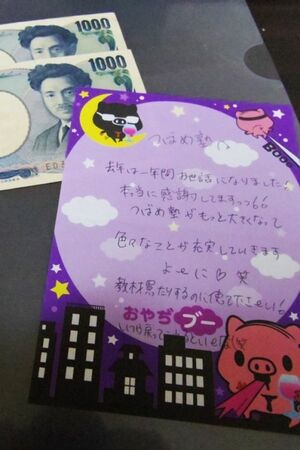 1000
1000
Boo
つばめ塾へ
去年は一年間お世話になりました!
本当に感謝してますっっ66
つばめ塾がもっと大きくなって
色々なことが充実していきます
よーに♡笑
教材買たりするのに使て下さーい!
おやぢブー